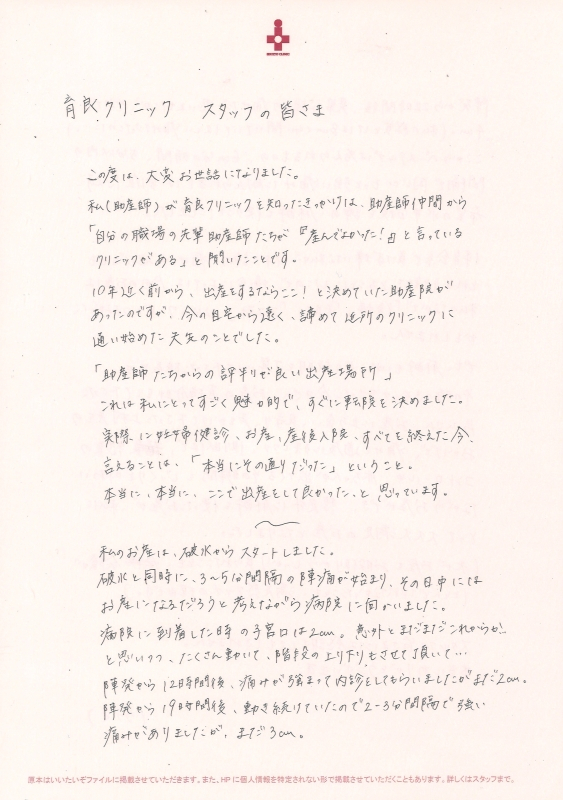 育良クリニック スタッフの皆さま
この度は、大変お世話になりました。
私(助産師)が育良クリニックを知ったきっかけは、助産師仲間から
「自分の職場の先輩助産師たちが『産んでよかった!』と言っている
クリニックがある」と聞いたことです。
10年近く前から、出産をするならここ!と決めていた助産院が
あったのですが、今の自宅から遠く、諦めて近所のクリニックに
通い始めた矢先のことでした。
「助産師たちからの評判が良い出産場所」
これは私にとってすごく魅力的で、すぐに転院を決めました。
実際に妊婦健診、お産、産後入院、すべてを終えた今、
言えることは、「本当にその通りだった」ということ。
本当に、本当に、ここで出産をして良かった、と思っています。
私のお産は、破水からスタートしました。
破水と同時に、3~5分間隔の陣痛が始まり、その日中には
お産になるだろうと考えながら病院に向かいました。
病院に到着した時の子宮口は2cm。意外とまだまだこれからか!
と思いつつ、たくさん動いて、階段の上り下りもさせて頂いて…
陣発から12時間後、痛みが強まって内診をしてもらいましたがまだ2cm。
陣発から19時間後、動き続けていたので2-3分間隔で強い
痛みがありましたが、まだ3cm。
原本はいいたいぞファイルに掲載させていただきます。また、HPに個人情報を特定されない形で掲載させていただくこともあります。詳しくはスタッフまで。